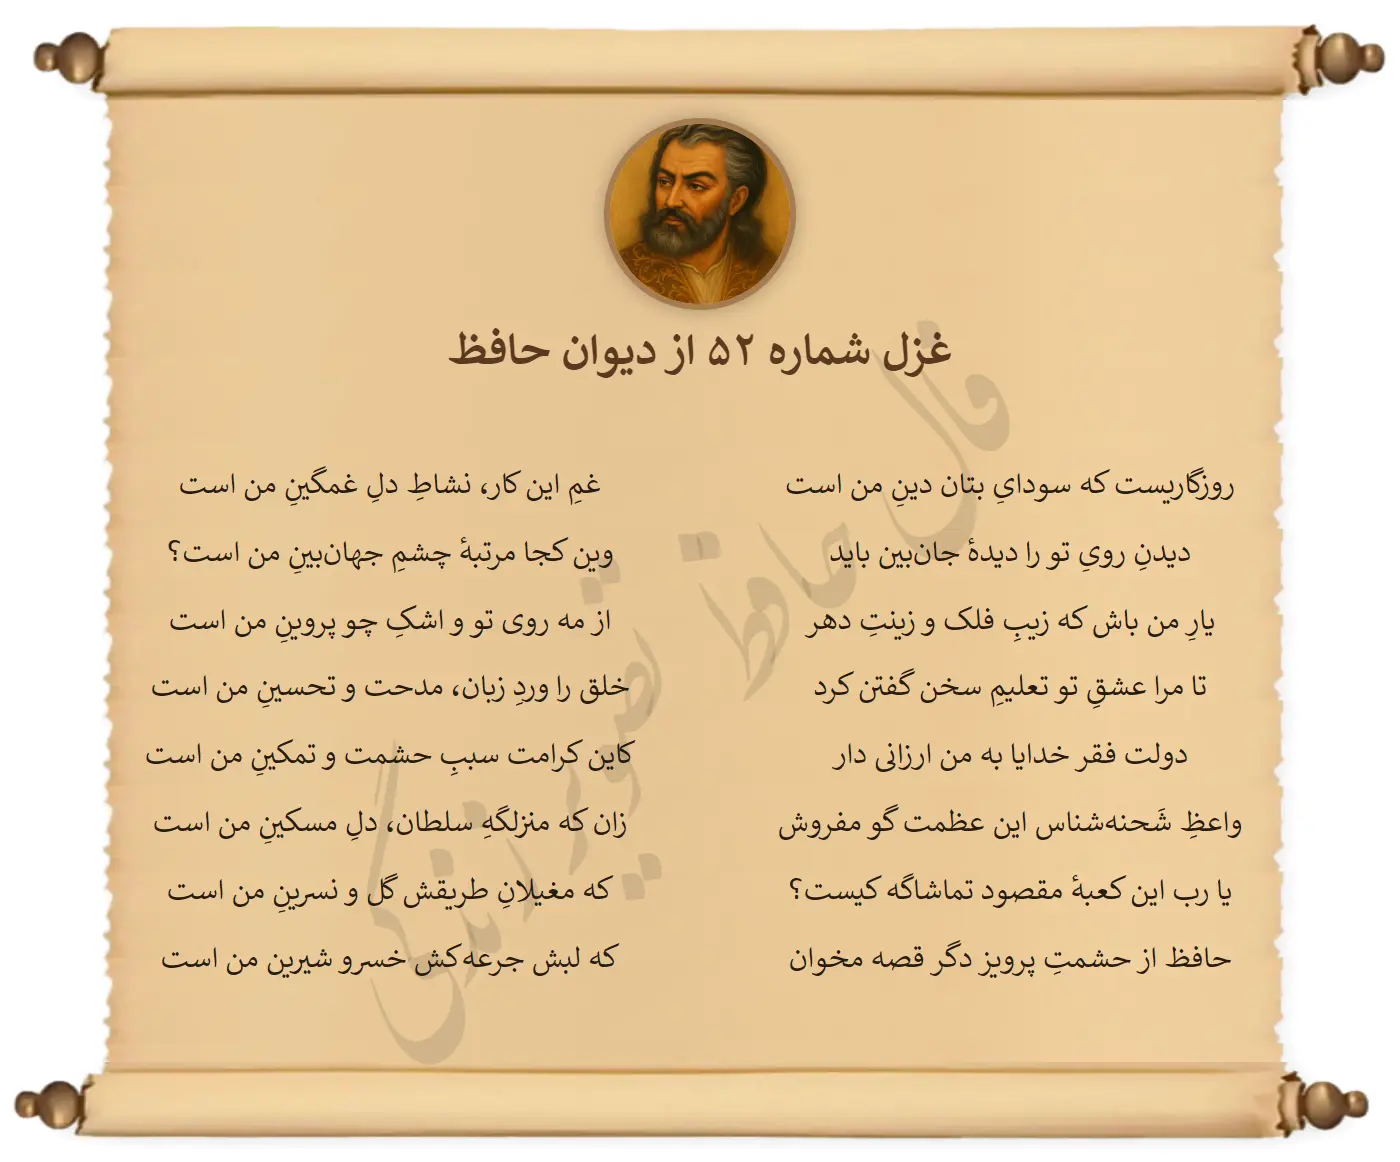 غزل شماره ۵۲ از دیوان حافظ
روزگاریست که سودایِ بتان دینِ من است
غمِ این کار، نشاطِ دلِ غمگینِ من است
دیدنِ رویِ تو را دیدهٔ جان‌بین باید
وین کجا مرتبهٔ چشمِ جهان‌بینِ من است؟
یارِ من باش که زیبِ فلک و زینتِ دهر
از مه روی تو و اشکِ چو پروینِ من است
تا مرا عشقِ تو تعلیمِ سخن گفتن کرد
خلق را وردِ زبان، مدحت و تحسینِ من است
دولت فقر خدایا به من ارزانی دار
کاین کرامت سببِ حشمت و تمکینِ من است
واعظِ شَحنه‌شناس این عظمت گو مفروش
زان که منزلگهِ سلطان، دلِ مسکینِ من است
یا رب این کعبهٔ مقصود تماشاگه کیست؟
که مغیلانِ طریقش گل و نسرینِ من است
حافظ از حشمتِ پرویز دگر قصه مخوان
که لبش جرعه‌کش خسرو شیرین من است
فال حافظ تصویر زندگی